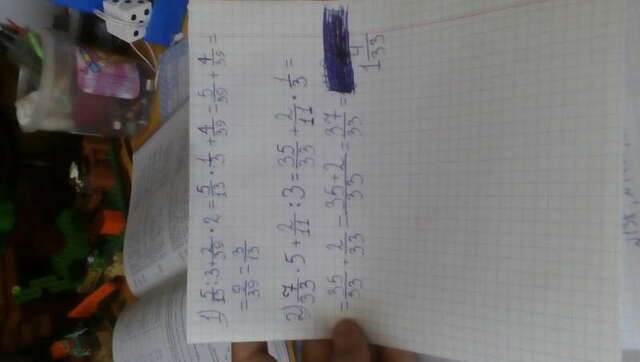 1) 5/13 : 3 + 2/39 · 2 = 5/13 · 1/3 + 4/39 = 5/39 + 4/39 =
= 9/39 = 3/13
2) 7/33 · 5 + 2/11 : 3 = 35/33 + 2/11 · 1/3 =
= 35/33 + 2/33 = 35+2/33 = 37/33 =
1 4/33